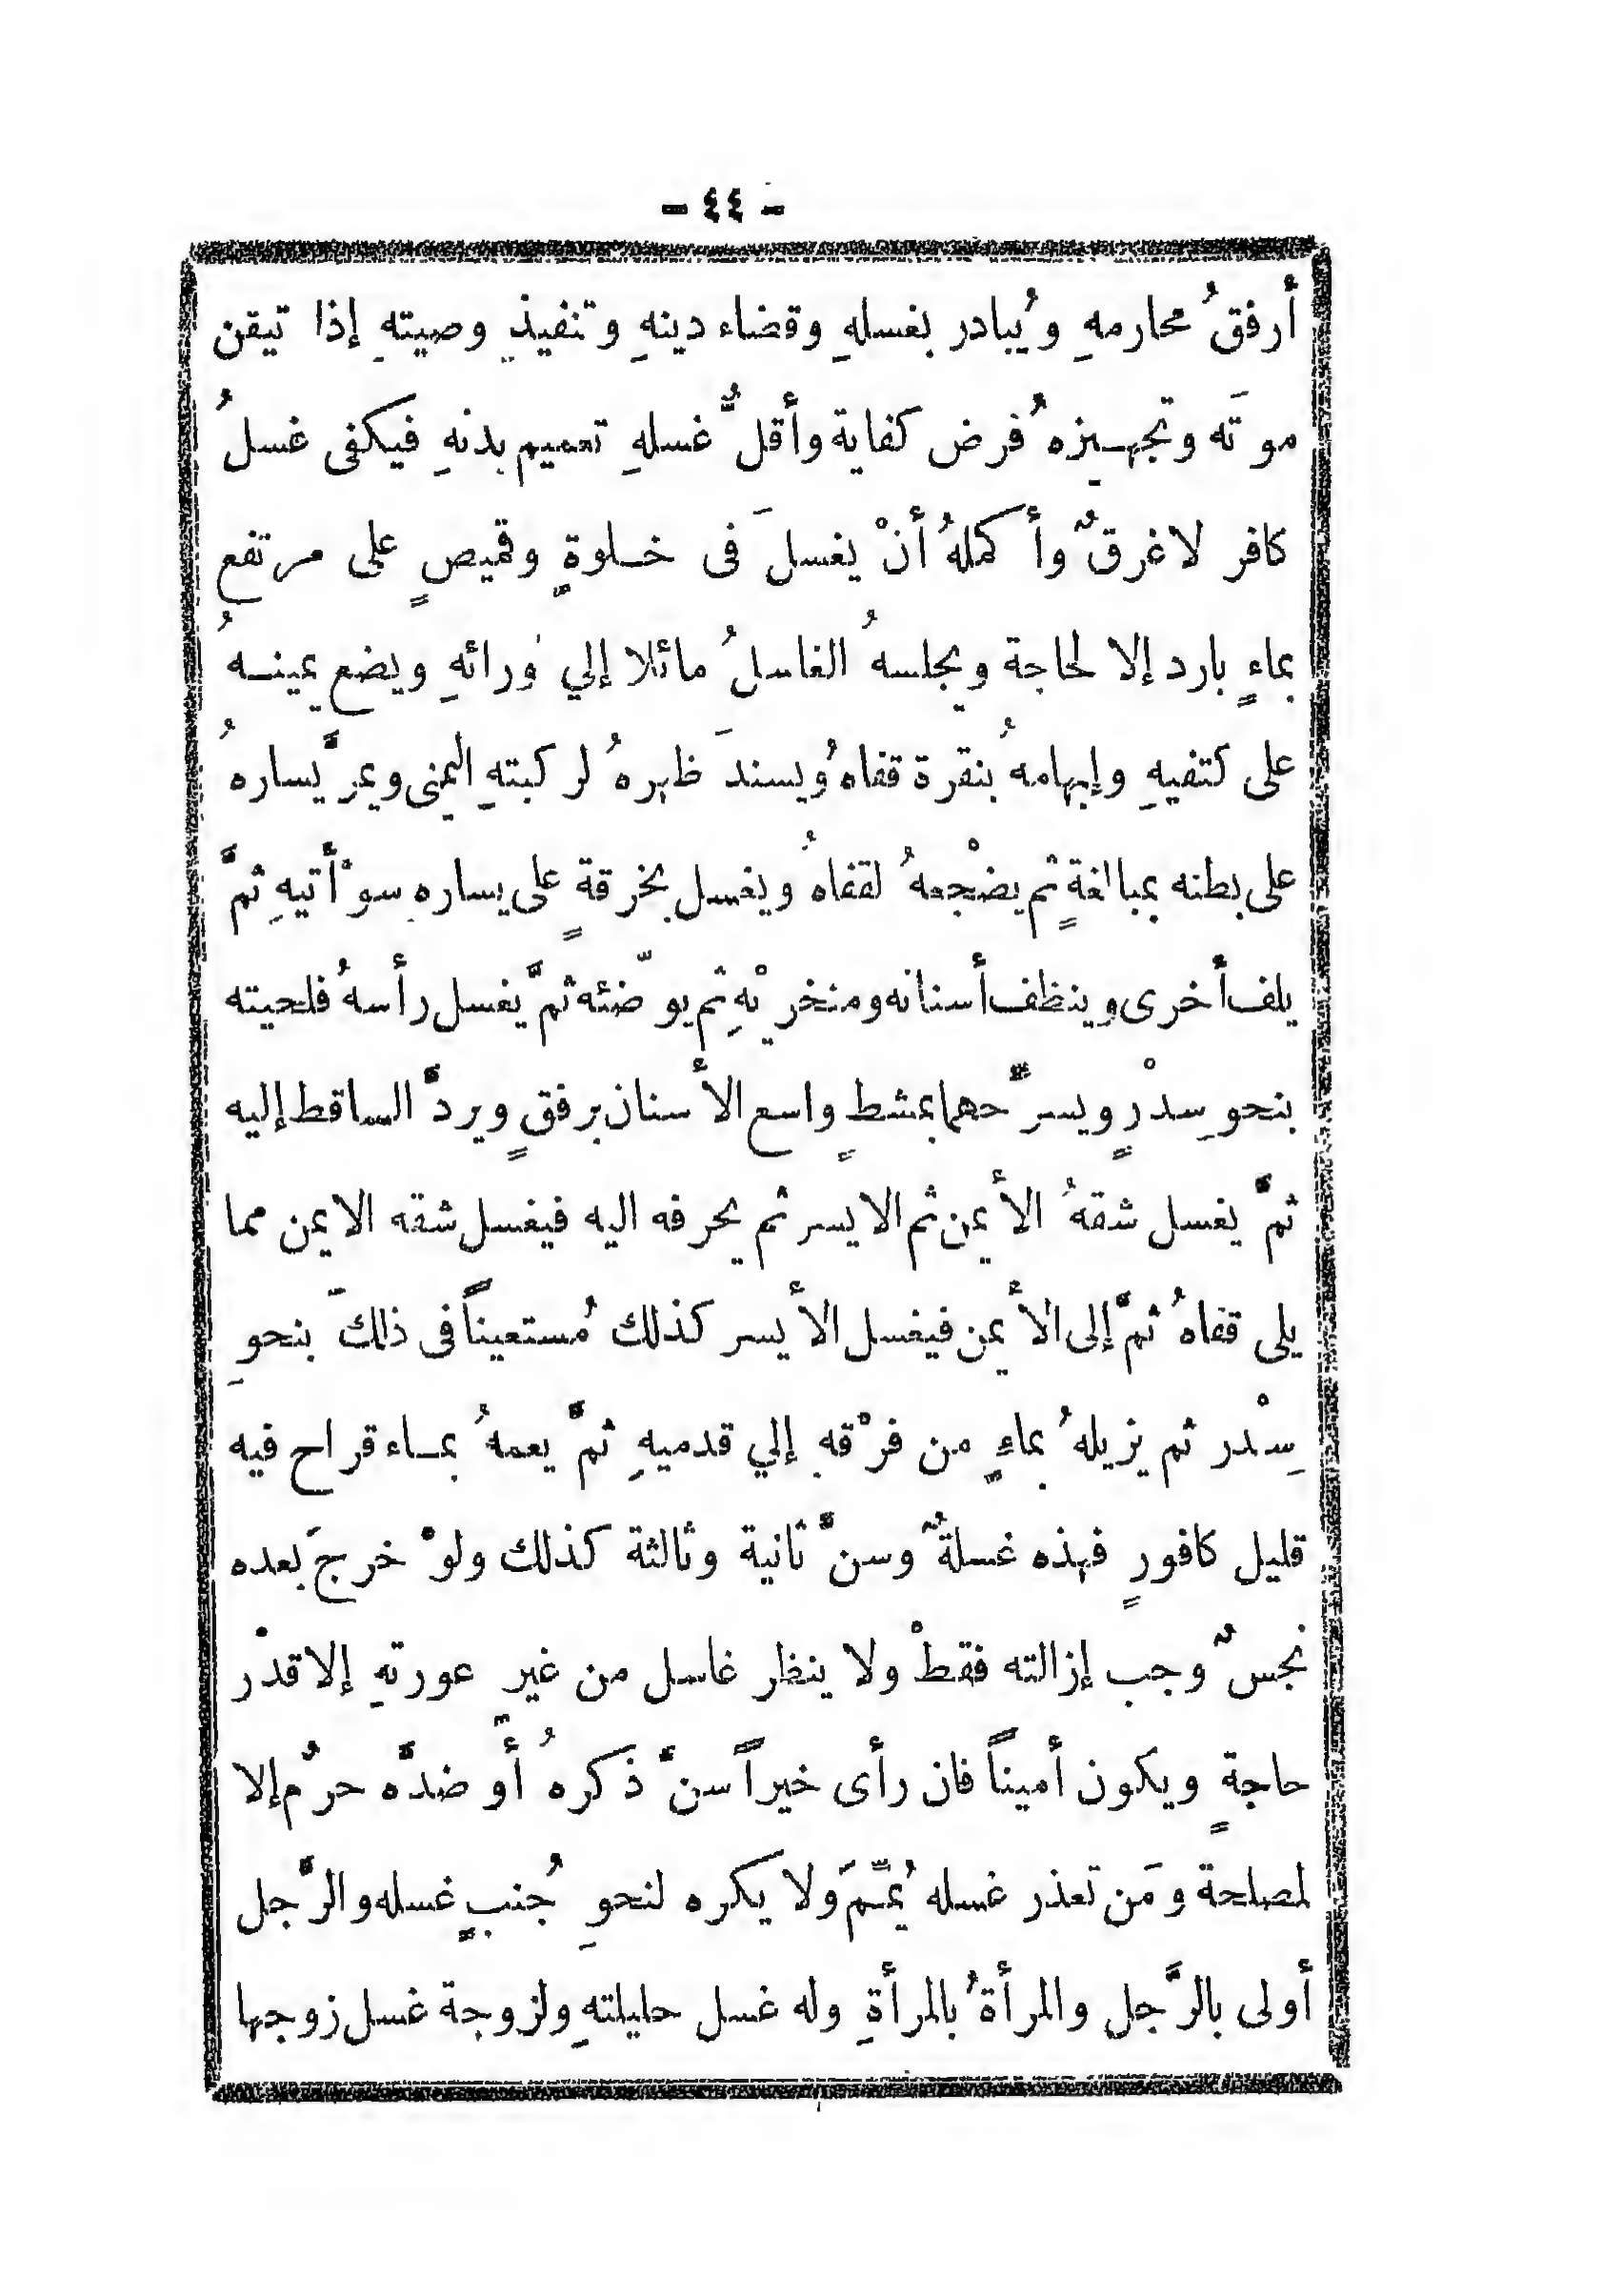 - ٤٤ -
أرفقُ محارمهِ ويُبادر بغسلهِ وقضاء دينهِ وتنفيذِ وصيتهِ إذا تيقن
موتَه وتجهيزهُ فرض كفاية وأقلُّ غسلهِ تعميم بدنهِ فيكفى غسلُ
كافر لا غرقٌ وأكملهُ أنْ يغسلَ فى خلوةٍ وقميصٍ على مرتفع
بماءٍ بارد إلا لحاجة ويجلسهُ الغاسلُ مائلا إلي ورائهِ ويضع يمينهُ
على كتفيهِ وإبهامهُ بنقرة قفاهُ ويسندَ ظهرهُ لركبتهِ اليمنى ويمرَّ يسارهُ
على بطنه بمبالغةٍ ثم يضْجعهُ لقفاهُ ويغسل بخرقةٍ على يساره سوْأتيهِ ثمَّ
يلف أخرى وينظف أسنانه ومنخريْهِ ثم يوضّئه ثمَّ يغسل رأسهُ فلحيته
بنحو سِدْرٍ ويسرَّحهما بمشطٍ واسع الأسنان برفقٍ ويردَّ الساقط إليه
ثمَّ يغسل شقهُ الأيمن ثم الايسر ثم يحرفه اليه فيغسل شقه الايمن مما
يلى قفاهُ ثمَّ إلى الأيمن فيغسل الأيسر كذلك مُستعيناً فى ذلكَ بنحوِ
سِدْر ثم يزيلهُ بماءٍ من فرْقهِ إلي قدميهِ ثمَّ يعمهُ بماء قراح فيه
قليل كافورٍ فهذه غسلةٌ وسنَّ ثانية وثالثة كذلك ولوْ خرجَ بعده
نجسٌ وجب إزالته فقطْ ولا ينظر غاسل من غيرِ عورتهِ إلا قدْر
حاجةٍ ويكون أميناً فان رأى خيراً سنَّ ذكرهُ أو ضدَّه حرُم إلا
لمصلحة ومَن تعذر غسله يُمِّمَ ولا يكره لنحوِ جُنبٍ غسله والرَّجل
أولى بالرَّجل والمرأةُ بالمرأةِ وله غسل حليلتهِ ولزوجة غسل زوجها